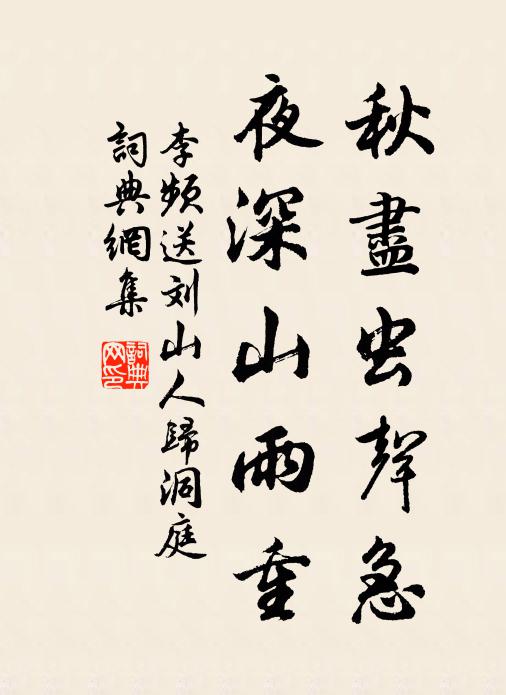 秋盡虫聲急
夜深山雨重
李頻送刘山人歸洞庭
詞典網集
詞典
网印